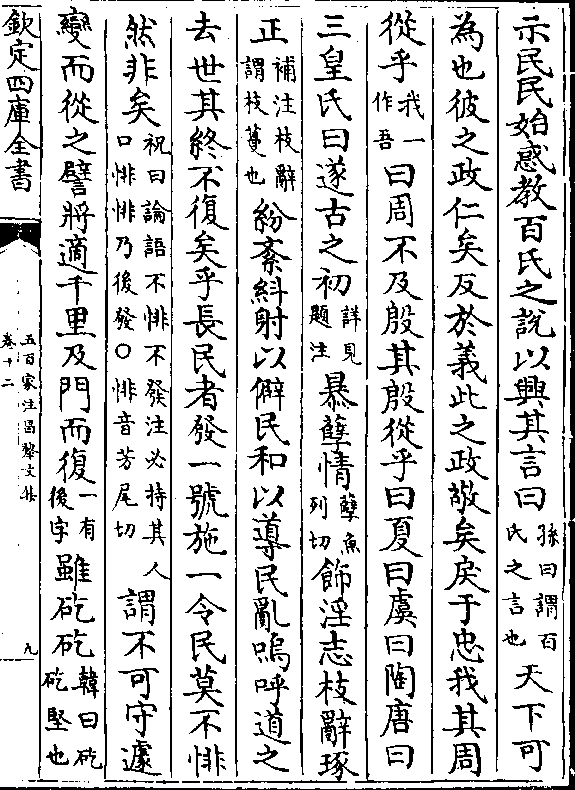 示民民始惑教百氏之說以興其言曰孫曰謂百氏之言也天下可
為也彼之政仁矣反於義此之政敬矣戾于忠我其周
從乎我一作吾曰周不及殷其殷從乎曰夏曰虞曰陶唐曰
三皇氏曰遂古之初詳見題注暴孽情孽魚列切飾淫志枝辭琢
正補注枝辭謂枝蔓也紛紊糾射以僻民和以導民亂嗚呼道之
去世其終不復矣乎長民者發一號施一令民莫不悱
然非矣祝曰論語不悱不發注必持其人口悱悱乃後發○悱音芳尾切謂不可守遽
變而從之譬將適千里及門而復一有後字雖矻矻韓曰矻矻堅也
欽定四庫全書
五百家注昌黎文集
卷十二
九